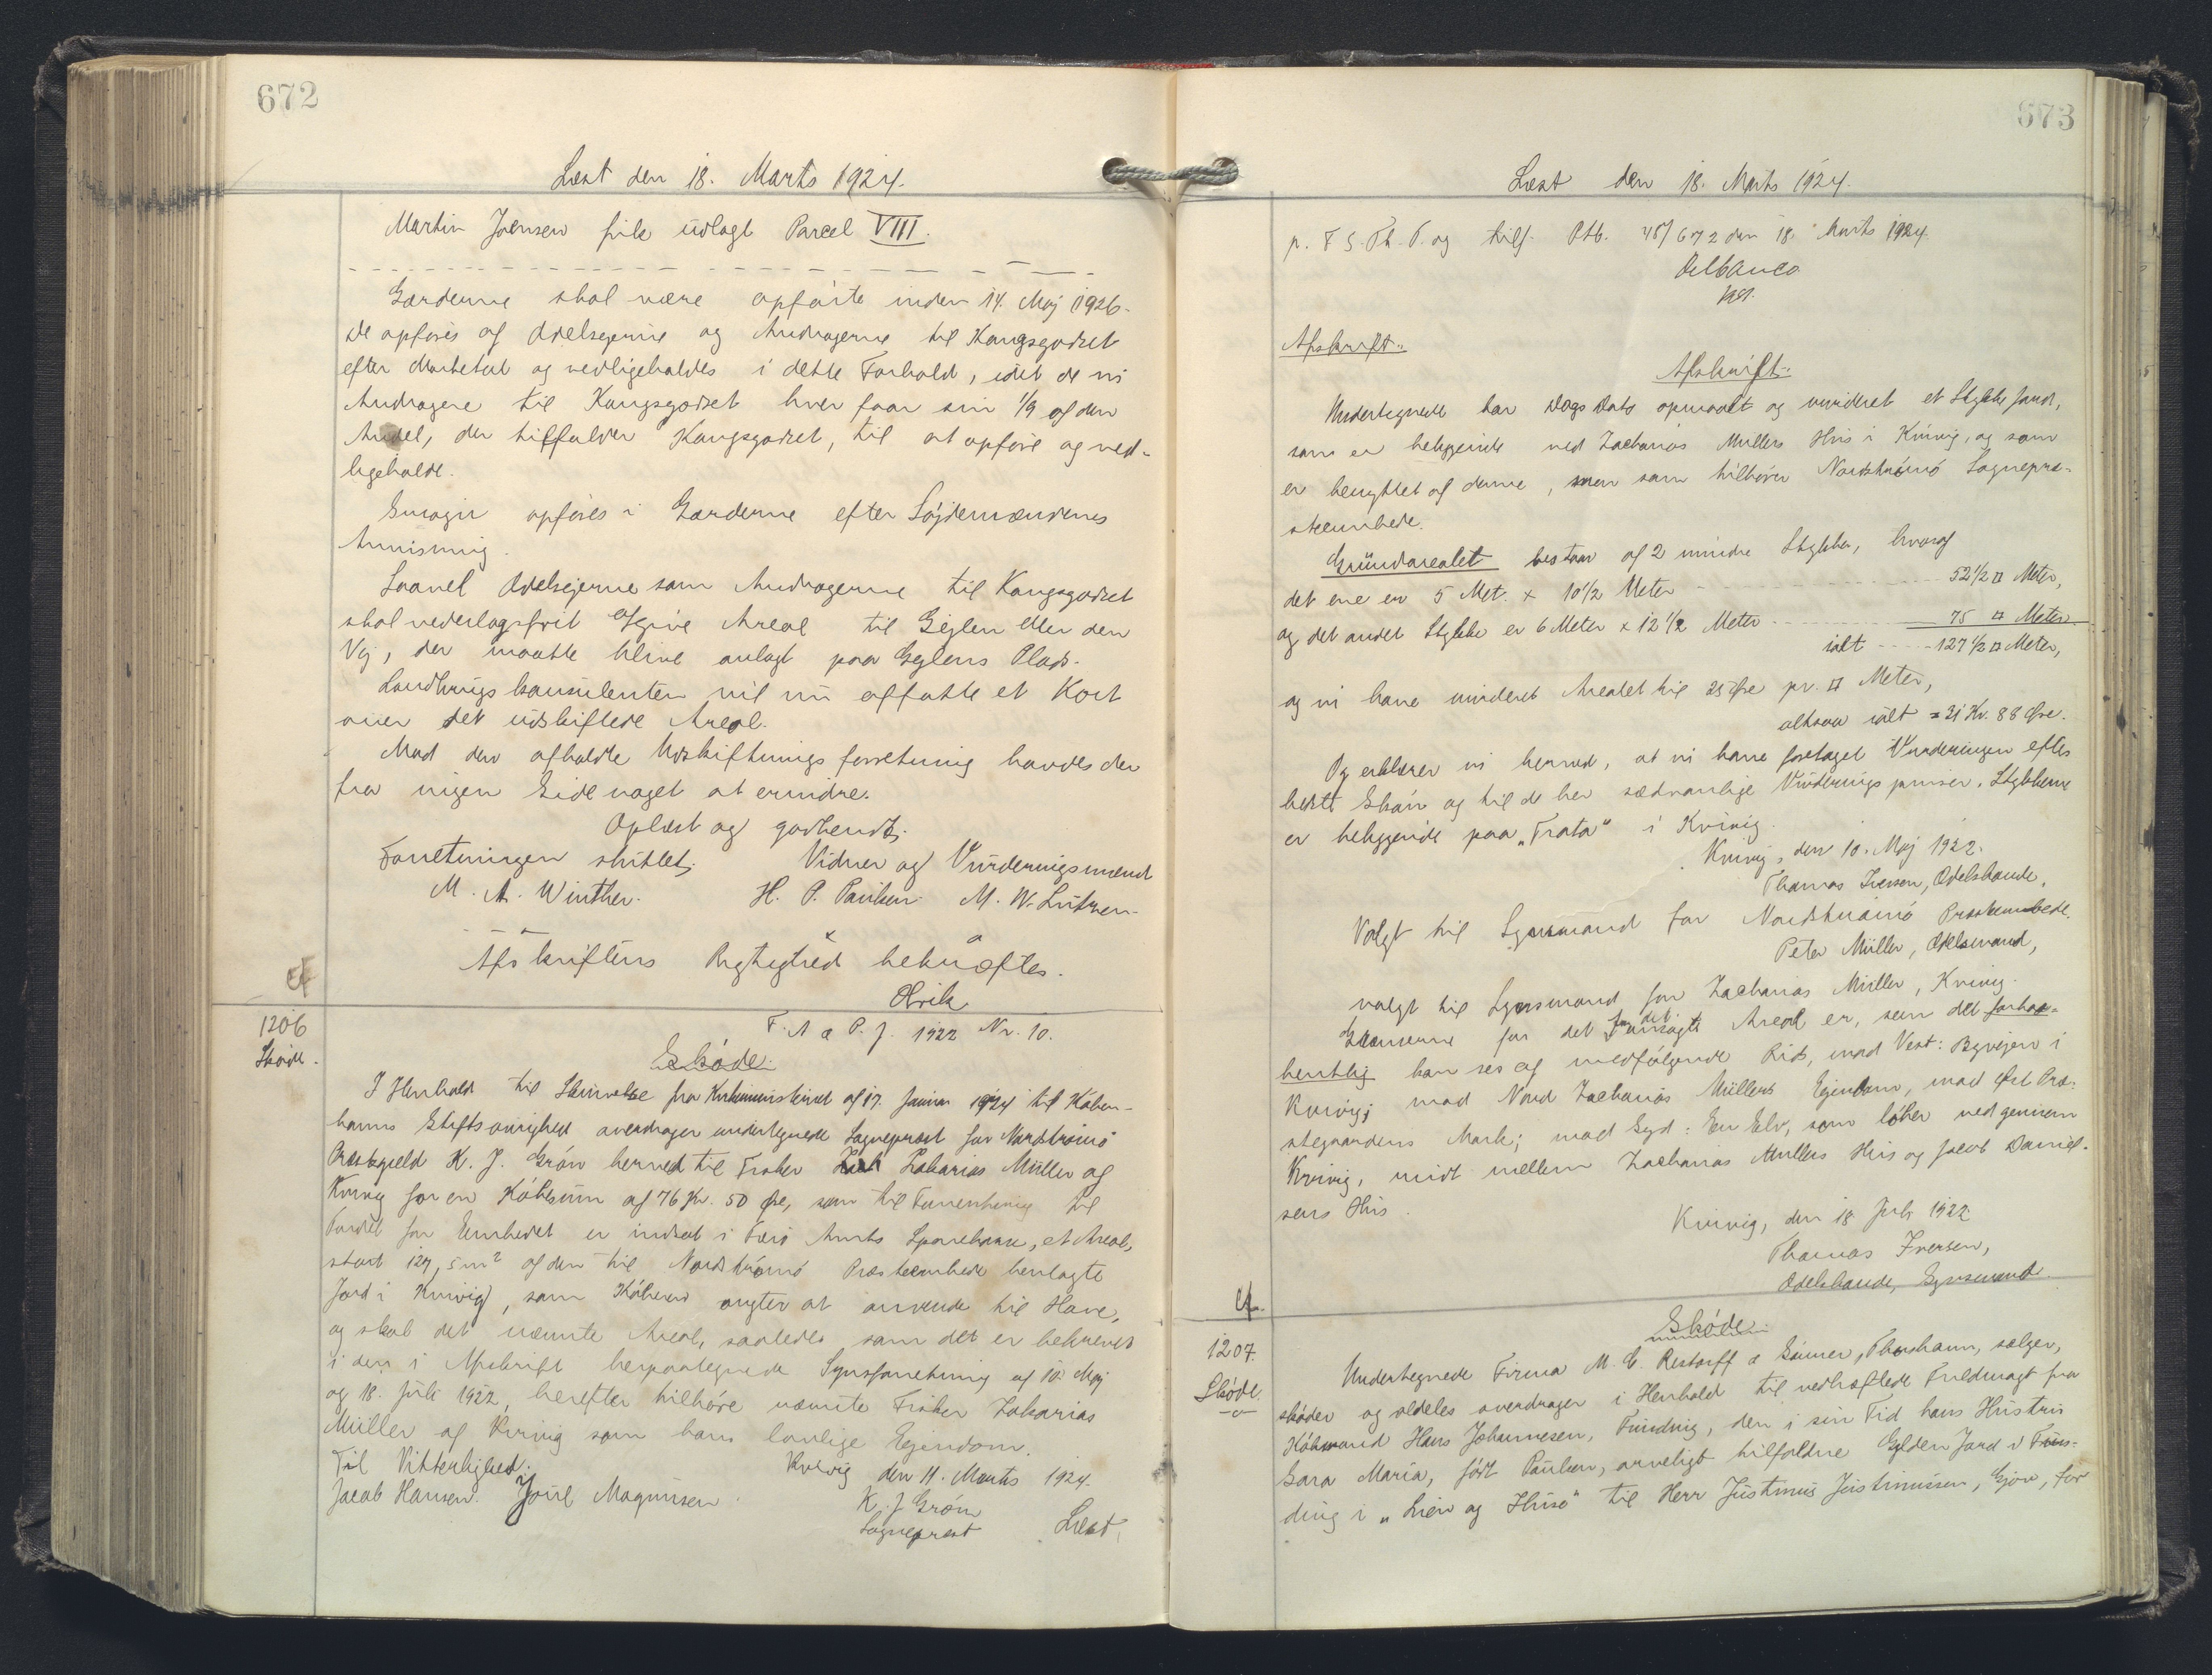 672
Læst den 18. Marts 1924.
Martin Joensen fik udlagt Parcel VIII.
Gærderne skal være opførte inden 14. Maj 1926.
De opføres af Odelsejerne og Andragerne til Kongsgodset
efter Marketal og vedligeholdes i dette Forhold, idet de ni
Andragere til Kongsgodset hver faar sin 1/9 af den
Andel, der tilfalder Kongsgodset, til at opføre og ved-
ligeholde.
Smogir opføres i Gærderne efter Løjdemændenes
Anvisning.
Saavel Odelsejerne som Andragerne til Kongsgodset
skal vederlagsfrit afgive Areal til Gejlen eller den
Vej, der maatte blive anlagt paa Gejlens Plads.
Landbrugskonsulenten vil nu affatte et Kort
over det udskiftede Areal.
Mod den afholdte Udskiftningsforretning havdes der
fra ingen Side noget at erindre.
Oplæst og godkendt.
Forretningen sluttet. Vidner og Vurderingsmænd
M. A. Winther. H. P. Paulsen. M. W. Lützen.
Afskriftens Rigtighed bekræftes.
Ølrik
1206
Skøde.
F. A a P. J. 1922 Nr. 10.
Skøde.
I Henhold til Skrivelse fra Kirkeministeriet af 17. Januar 1924 til Køben-
havns Stiftsøvrighed overdrager undertegnede Sognepræst for Nordstrømø
Præstegæld K. J. Grøn herved til Fisker Zakarias Müller af
Kvivig for en Købesum af 76 Kr. 50 Øre, som til Forrentning til
Fordel for Embedet er indsat i Færø Amts Sparekasse, et Areal,
stort 127,5 m² af den til Nordstrømø Præsteembede henlagte
Jord i Kvivig, som Køberen agter at anvende til Have,
og skal det nævnte Areal, saaledes som det er bekrevet
i den i Afskrift herpaategnede Synsforretning af 10. Maj
og 18. Juli 1922, herefter tilhøre nævnte Fisker Zakarias
Müller af Kvivig som hans lovlige Ejendom.
Til Vitterlighed: Kvivig den 11. Marts 1924.
Jacob Hansen. Joül Magnusen. K. J. Grøn
Sognepræst Læst.
673
Læst den 18. Marts 1924.
p. F S. Th. P. og tilf. Ptb. 45/672 den 18. Marts 1924.
Delbanco
Afskrift:
Afskrift:
Undertegnede har Dags Dato opmaalt og vurderet et Stykke Jord,
som er beliggende ved Zacharias Müllers Hus i Kvivig, og som
er benyttet af denne, men som tilhører Nordstrømø Sognepræ-
steembede.
Grundarealet bestaar af 2 mindre Stykker, hvoraf
det ene er 5 Met. x 10 1/2 Meter - 52 1/2 □ Meter,
og det andet Stykke er 6 Meter x 12 1/2 Meter - 75 □ Meter
ialt - 127 1/2 □ Meter,
og vi have vurderet Arealet til 25 Øre pr. □ Meter,
altsaa ialt = 31 Kr. 88 Øre.
Og erklærer vi herved, at vi have foretaget Vurderingen efter
bedste Skøn og til de her sædvanlige Vurderingspriser. Stykkerne
er beliggende paa „Trata“ i Kvivig.
Kvivig, den 10. Maj 1922.
Thomas Iversen, Odelsbonde,
Valgt til Synsmand for Nordstrømø Præsteembede.
Peter Müller, Odelsmand,
valgt til Synsmand for Zacharias Müller, Kvivig.
Grænserne for det for det ansøgte Areal er, som det forhaa-
bentlig kan ses af medfølgende Rids, mod Vest: Bygvejen i
Kvivig; mod Nord Zacharias Müllers Ejendom, mod Øst Præ-
stegaardens Mark; mod Syd: En Elv, som løber ned gennem
Kvivig, midt mellem Zacharias Müllers Hus og Jacob Daniel-
sens Hus.
Kvivig, den 18 Juli 1922
Thomas Iversen,
Odelsbonde, Synsmand.
1207.
Skøde
Skøde.
Undertegnede Firma M. C. Restorff & Sønner, Thorshavn, sælger,
skøder og aldeles overdrager i Henhold til vedhæftede Fuldmagt fra
Købmand Hans Johannesen, Funding, den i sin Tid hans Hustru
Sara Maria, født Paulsen, arveligt tilfaldne Gylden Jord i Fun-
ding i „Lien og Húsø“ til Herr Justinus Justinussen, Gjov, for